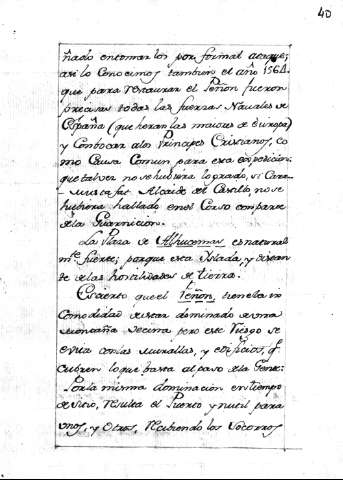 40
ñado en tomarlos por formal ataque;
asi lo Conocimos tambien el año 1564
que para restaurar el Peñon fueron
precisas todas las fuerzas Navales de
España (que heran las maiores de Europa)
y Combocar alos Principes Cristianos, co
mo Causa Comun para esta expedicion;
que tal vez no se hubiera logrado, si Cara-
mustafat Alcaide del Castillo, no se
hubiera hallado en el Corso con parte
de la Guarnicion.
La Plaza de Alhucemas es natural
mte fuerte; porque esta Islada, y
de las hostilidades de tierra.
Es cierto que el Peñon, tiene la in
Comodidad de estar dominado de una
Montaña Vecina pero este Riesgo se
evita con las murallas, y edificios, q.
Cubren lo que basta al paso de la Gente:
Por la misma dominacion en tiempo
de Sitio, resulta el Puerto ynutil para
unos, y Otros, Recibiendo los Socorros